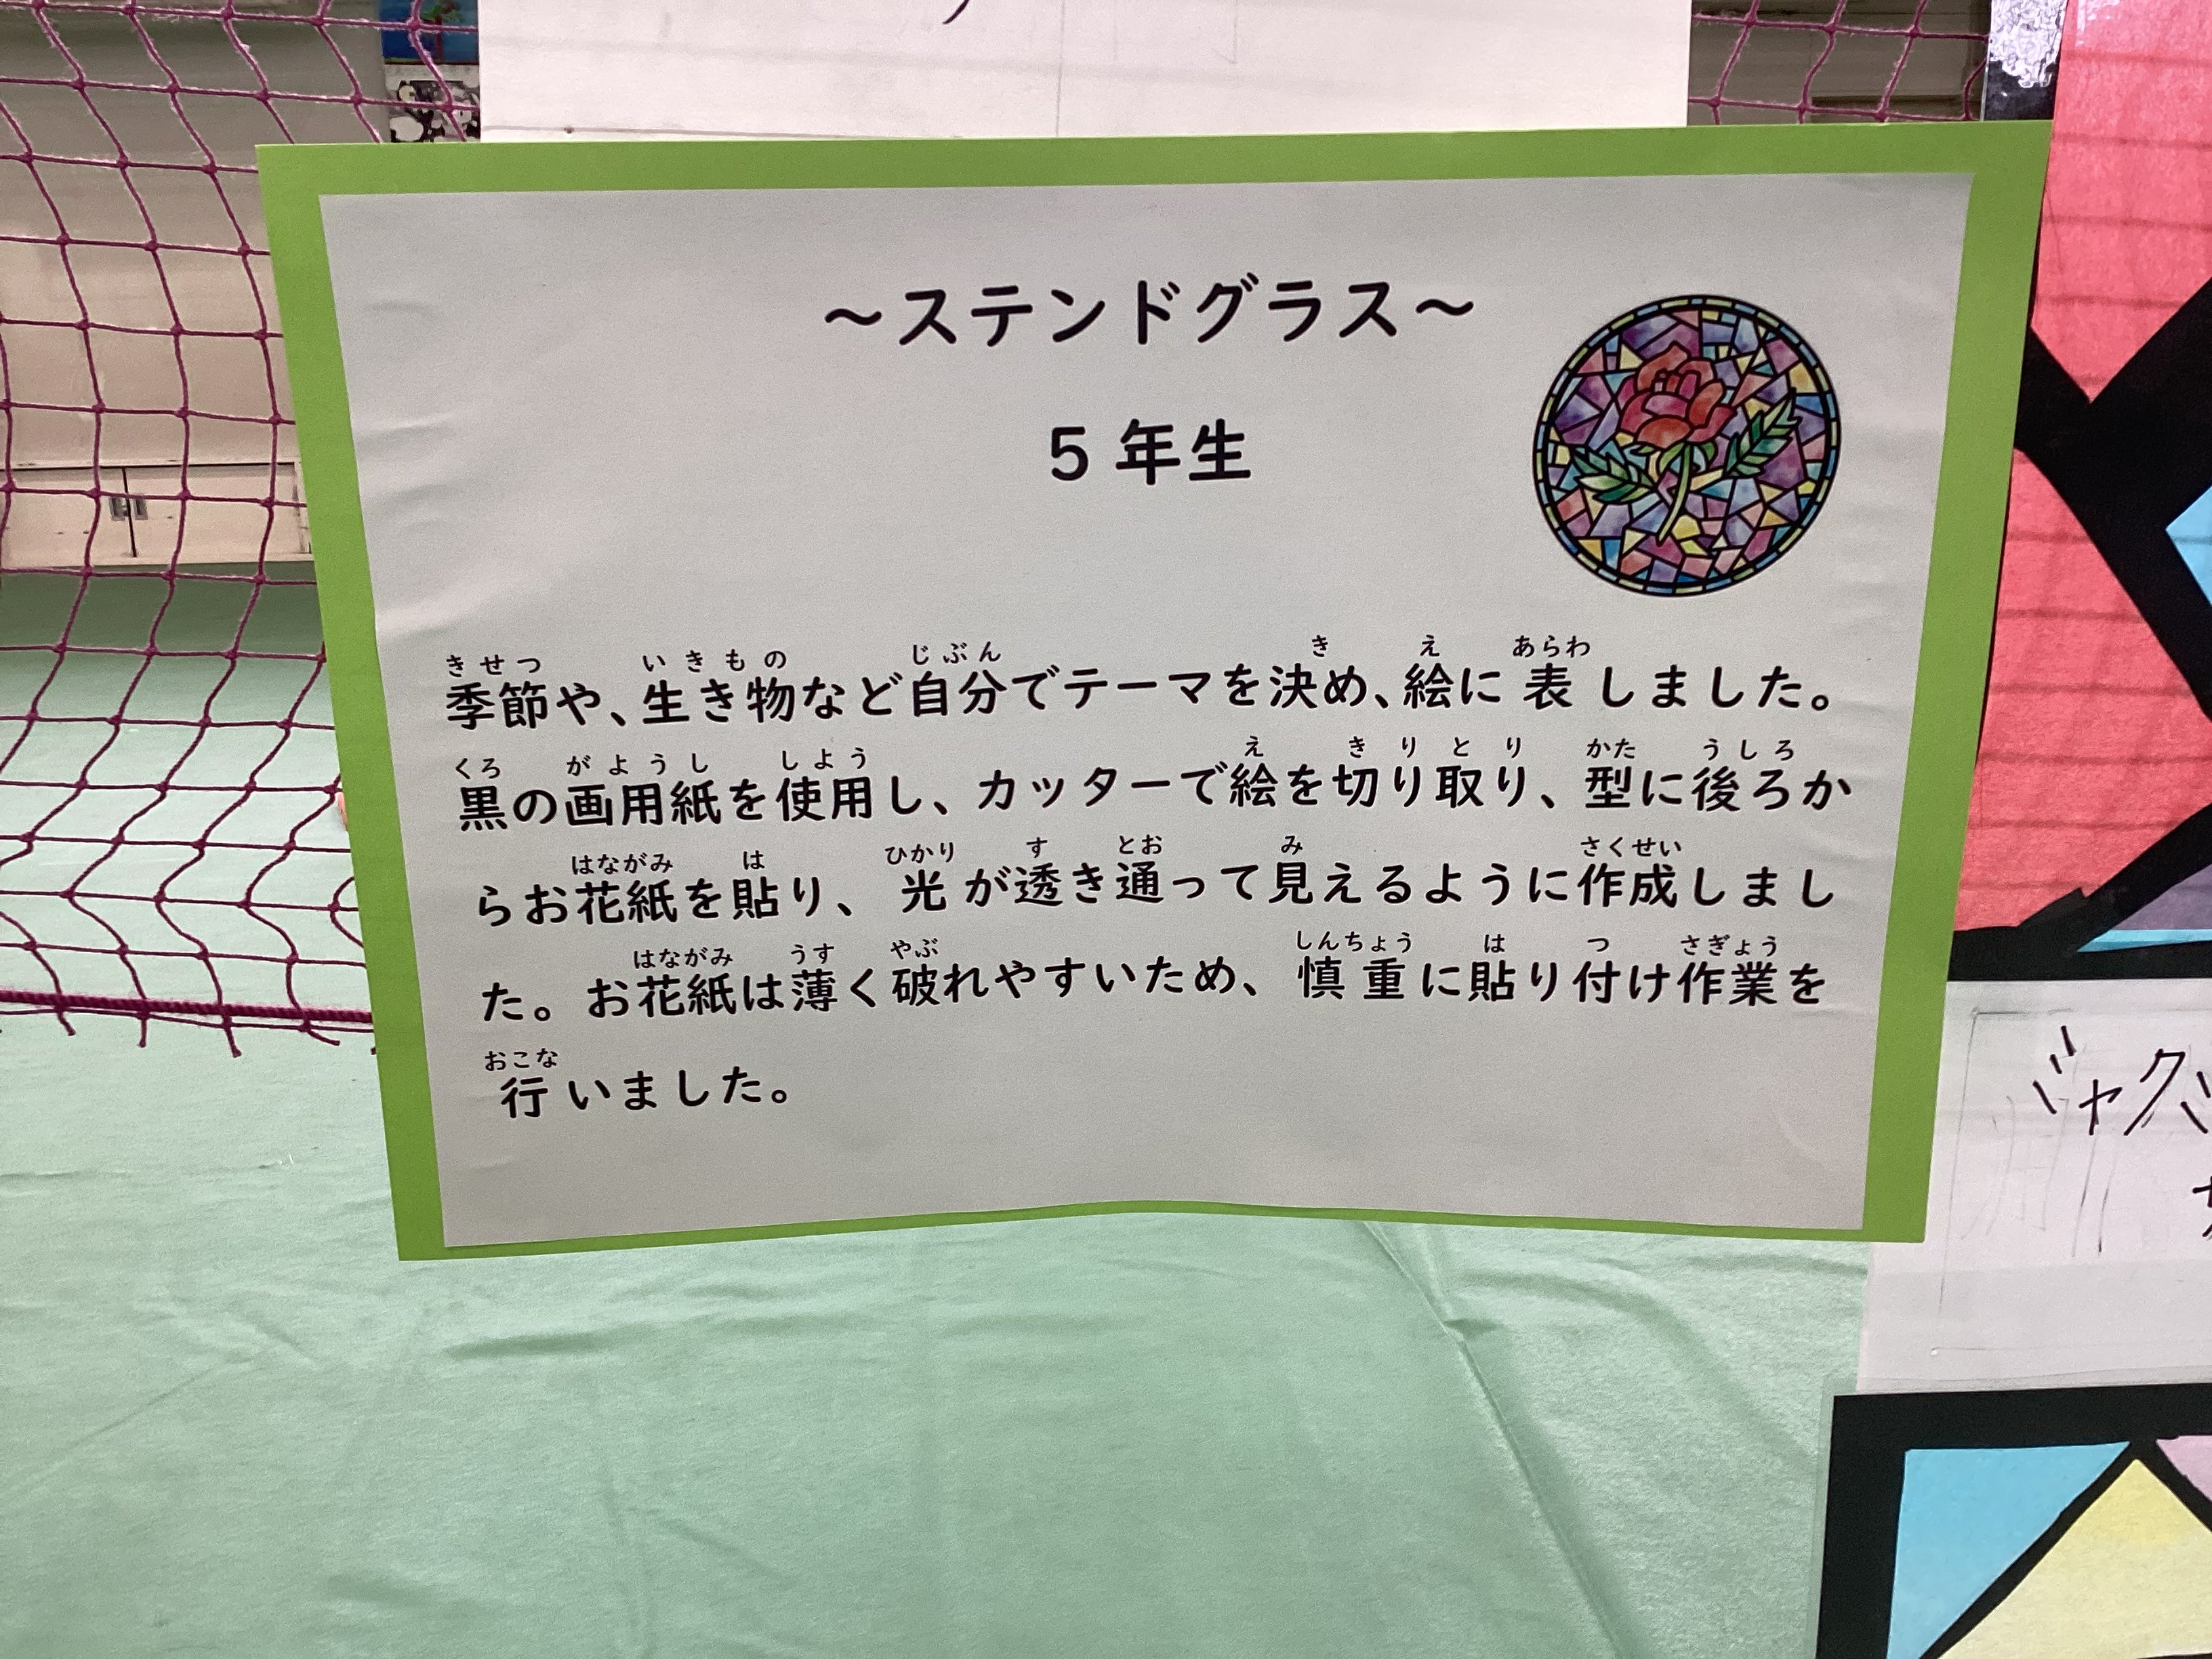 ～ステンドグラス～
5年生
季節や、生き物など自分でテーマを決め、絵に表しました。
黒の画用紙を使用し、カッターで絵を切り取り、型に後ろか
らお花紙を貼り、光が透き通って見えるように作成しまし
た。お花紙は薄く破れやすいため、慎重に貼り付け作業を
行いました。